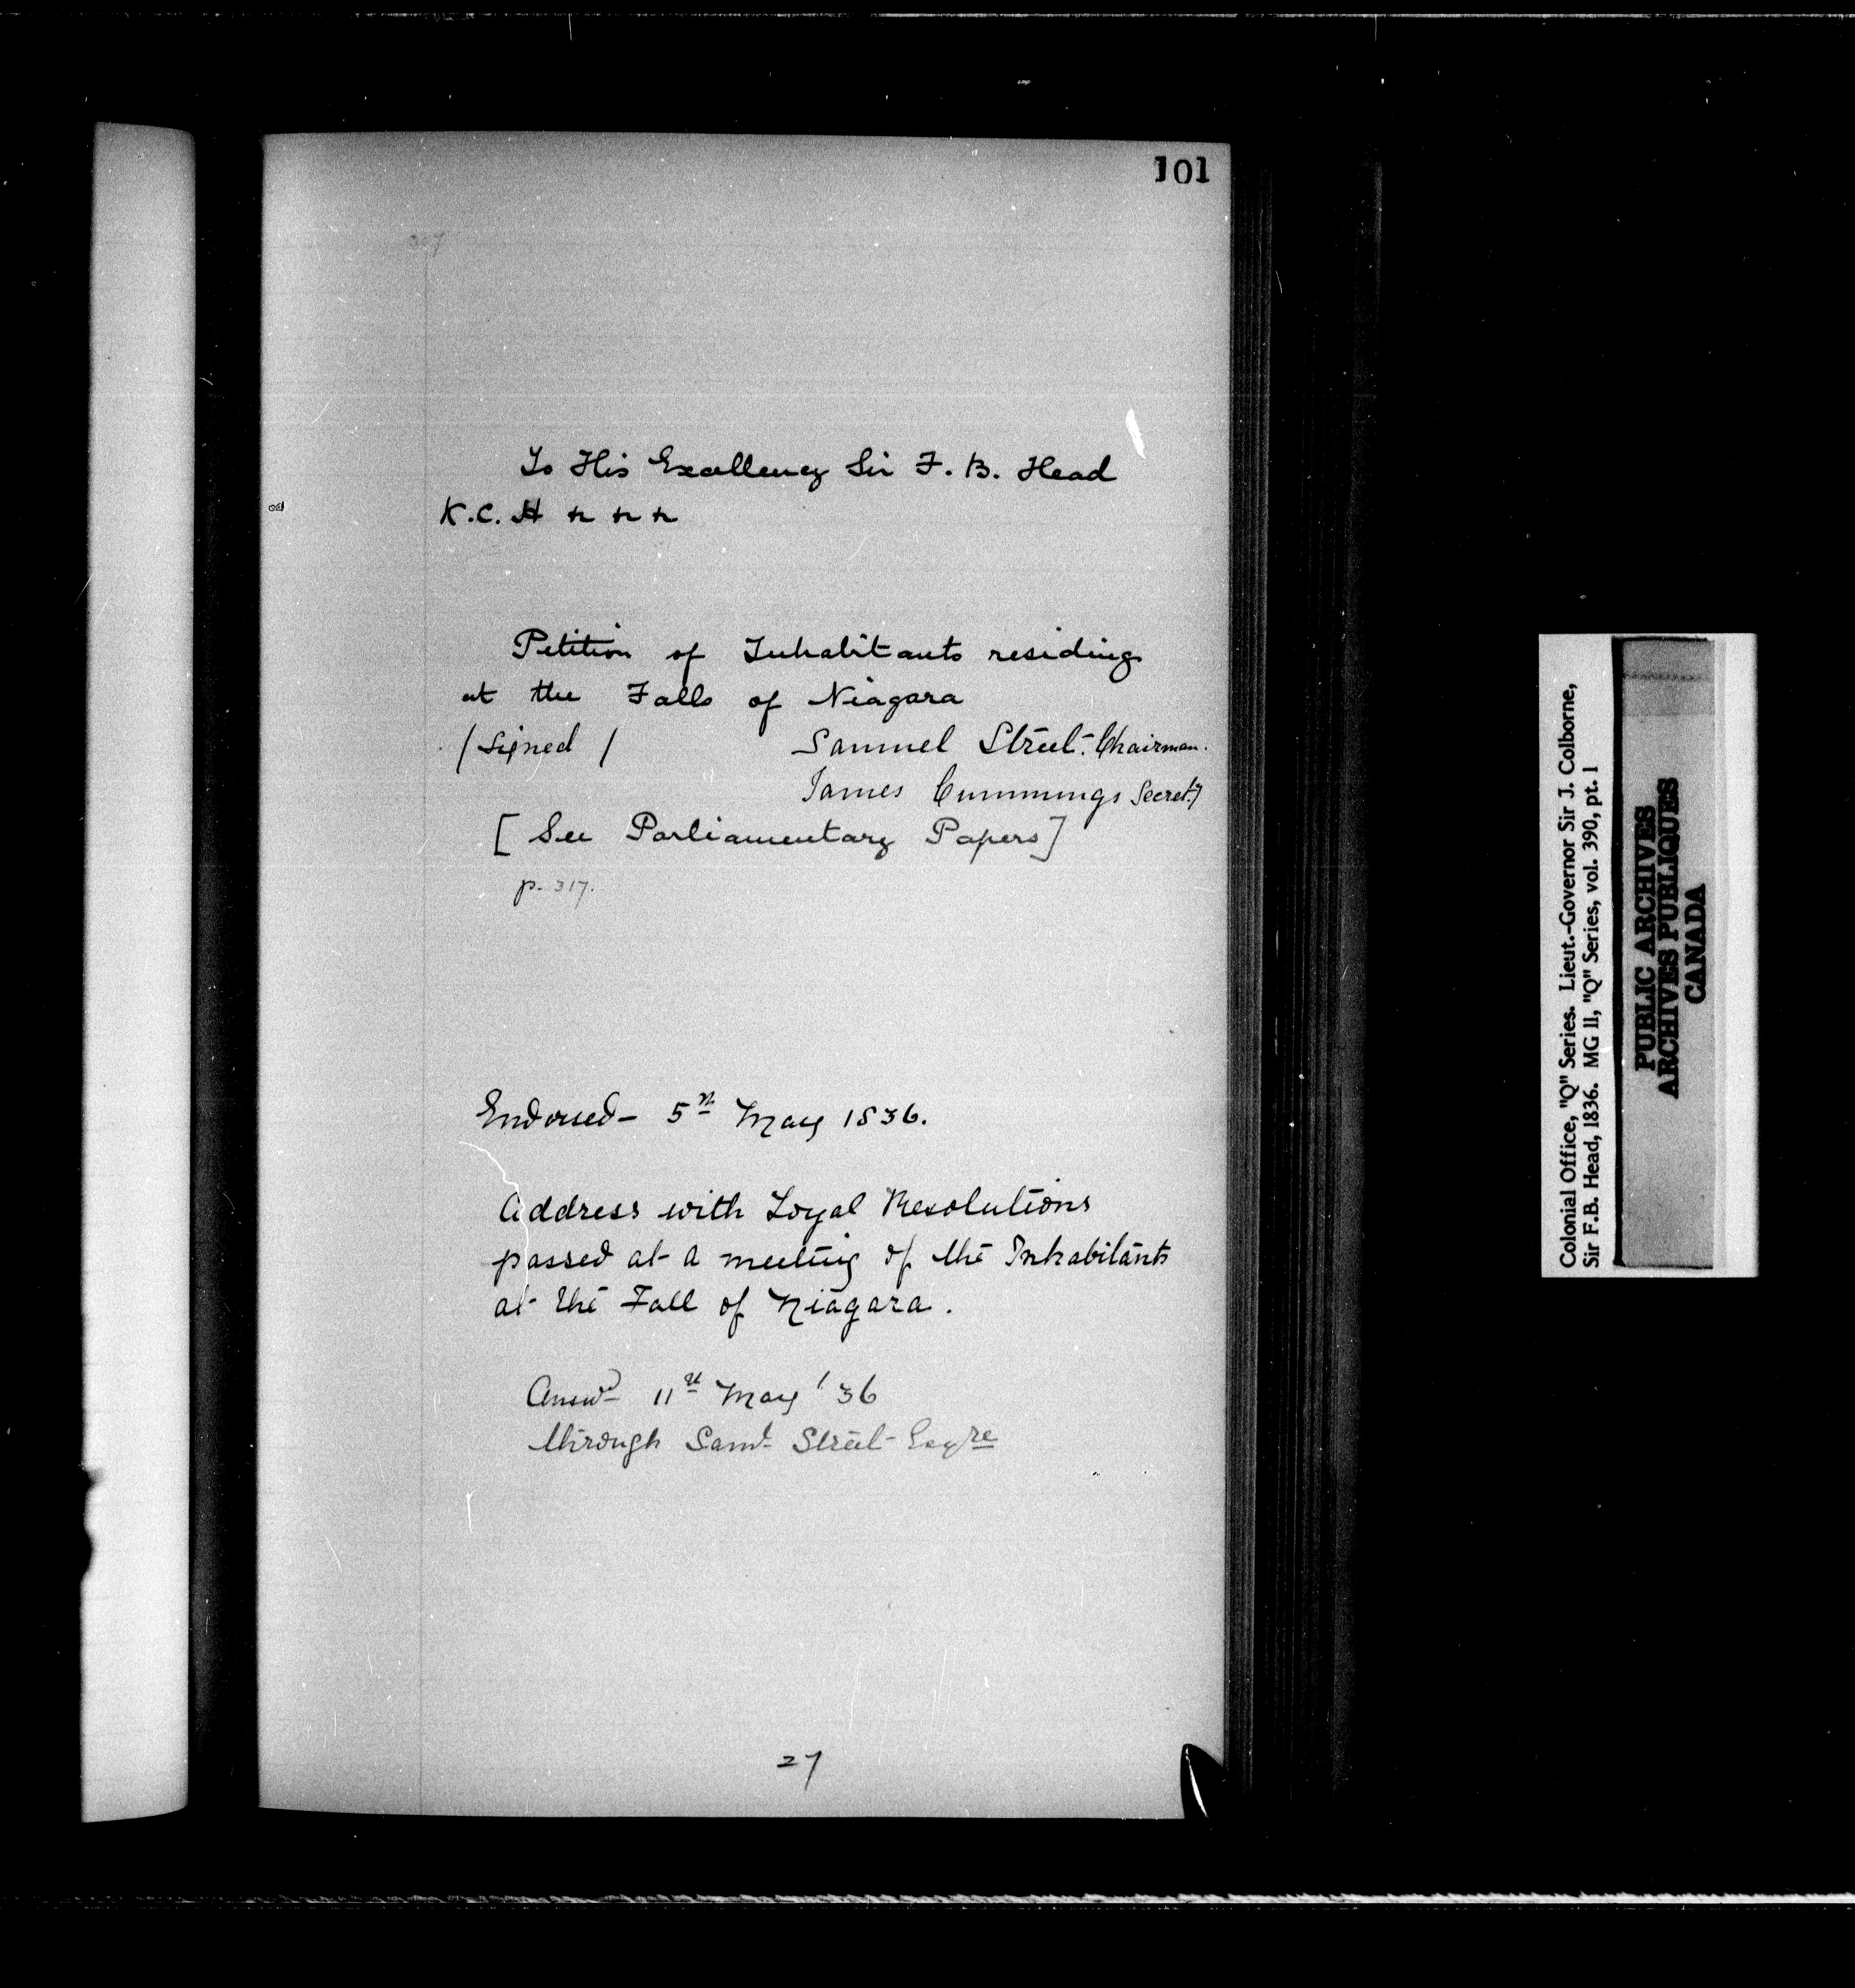 101
207
To His Excellency Sir F. B. Head
K.C. H &c &c &c
Petition of Inhabitants residing
at the Falls of Niagara
/ Signed / Samuel Street. Chairman.
James Cummings Secrety
[ See Parliamentary Papers ]
p. 317.
Endorsed - 5th May 1836.
Address with Loyal Resolutions
passed at a meeting of the Inhabitants
at the Fall of Niagara.
Answd 11th May '36
through Saml Street Esqre
27
Colonial Office, "Q" Series. Lieut.-Governor Sir J. Colborne,
Sir F.B. Head, 1836. MG 11, "Q" Series, vol. 390, pt. 1
PUBLIC ARCHIVES
ARCHIVES PUBLIQUES
CANADA